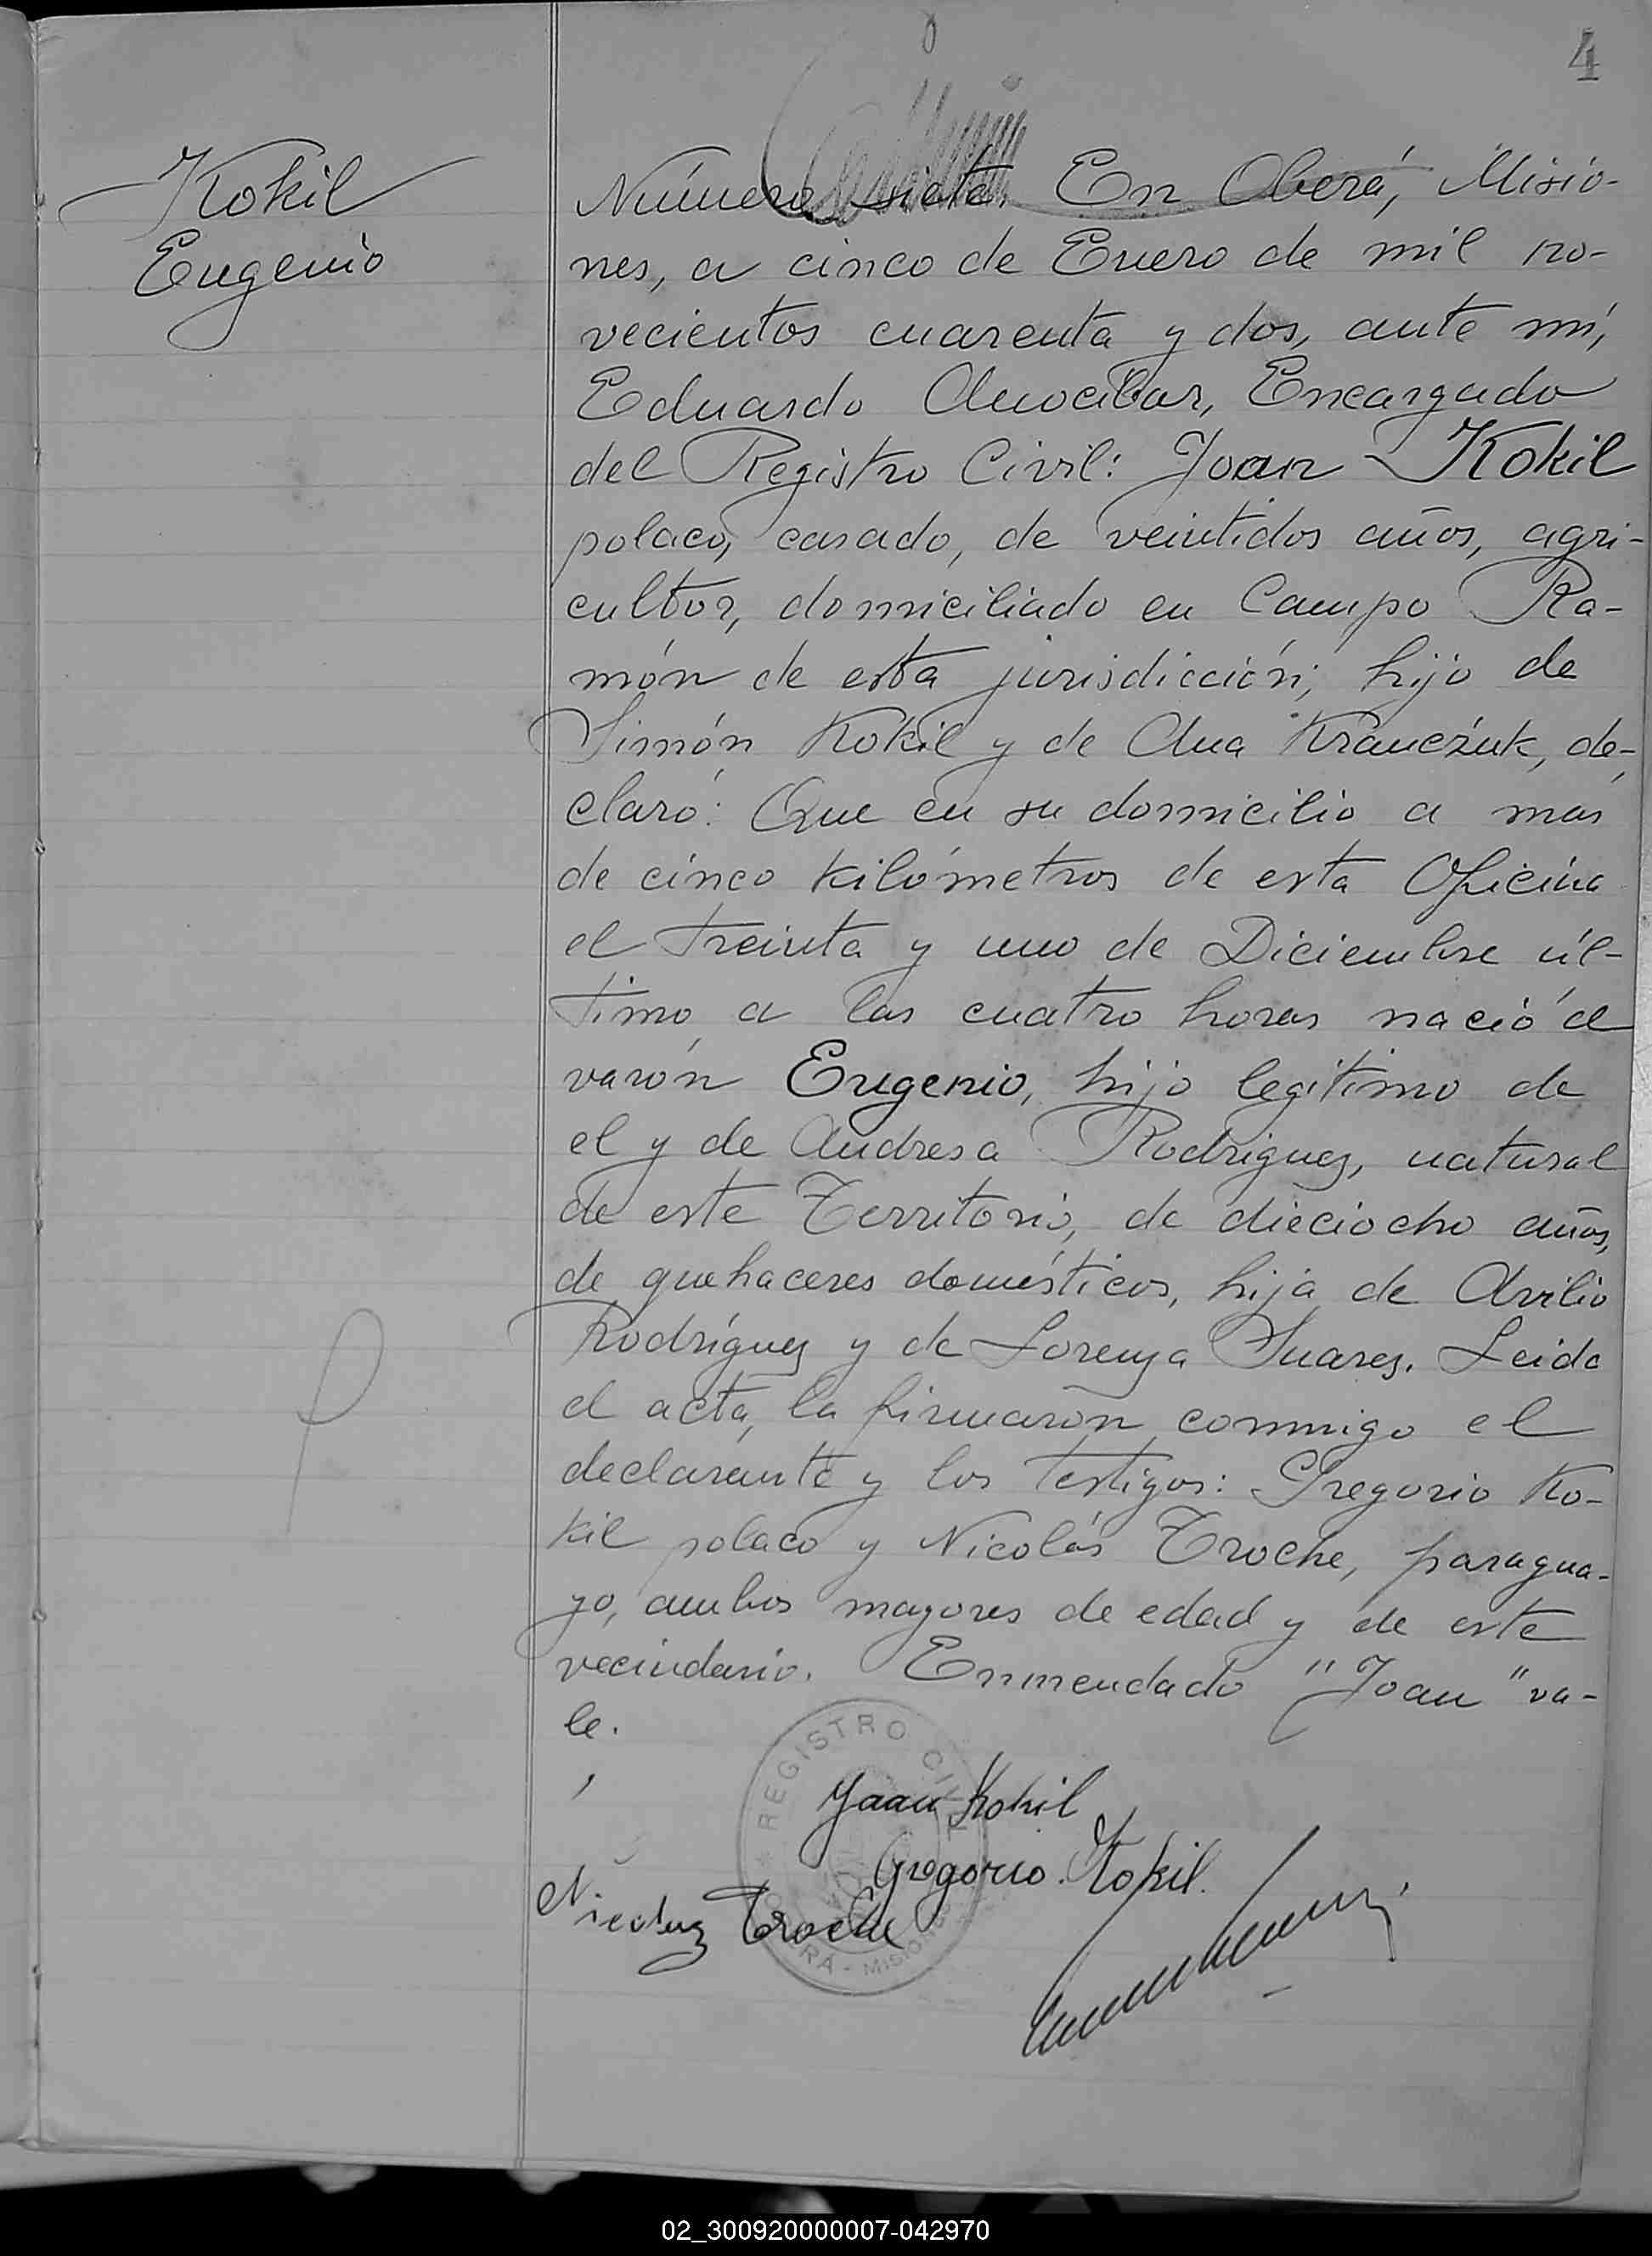 4
Kokil
Eugenio
Número siete. En Oberá, Misio-
nes, a cinco de Enero de mil no-
vecientos cuarenta y dos, ante mí,
Eduardo Anocibar, Encargado
del Registro Civil: Joan Kokil
polaco, casado, de veintidos años, agri-
cultor, domiciliado en Campo Ra-
món de esta jurisdicción; hijo de
Simón Kokil y de Ana Krauczuk, de-
claró: Que en su domicilio a mas
de cinco kilómetros de esta Oficina
el treinta y uno de Diciembre úl-
timo a las cuatro horas nació el
varón Eugenio, hijo legítimo de
el y de Andresa Rodriguez, natural
de este Territorio, de dieciocho años,
de quehaceres domésticos, hija de Avilio
Rodríguez y de Lorenza Suarez. Leida
el acta, la firmaron conmigo el
declarante y los testigos: Gregorio Ko-
kil polaco y Nicolás Troche, paragua-
yo, ambos mayores de edad y de este
vecindario. Enmendado "Joan" va-
le.
REGISTRO CIVIL
Jaan Kokil
Gregorio Kokil.
Nicolaz Troche
OBERÁ - MISIONES
02_300920000007-042970